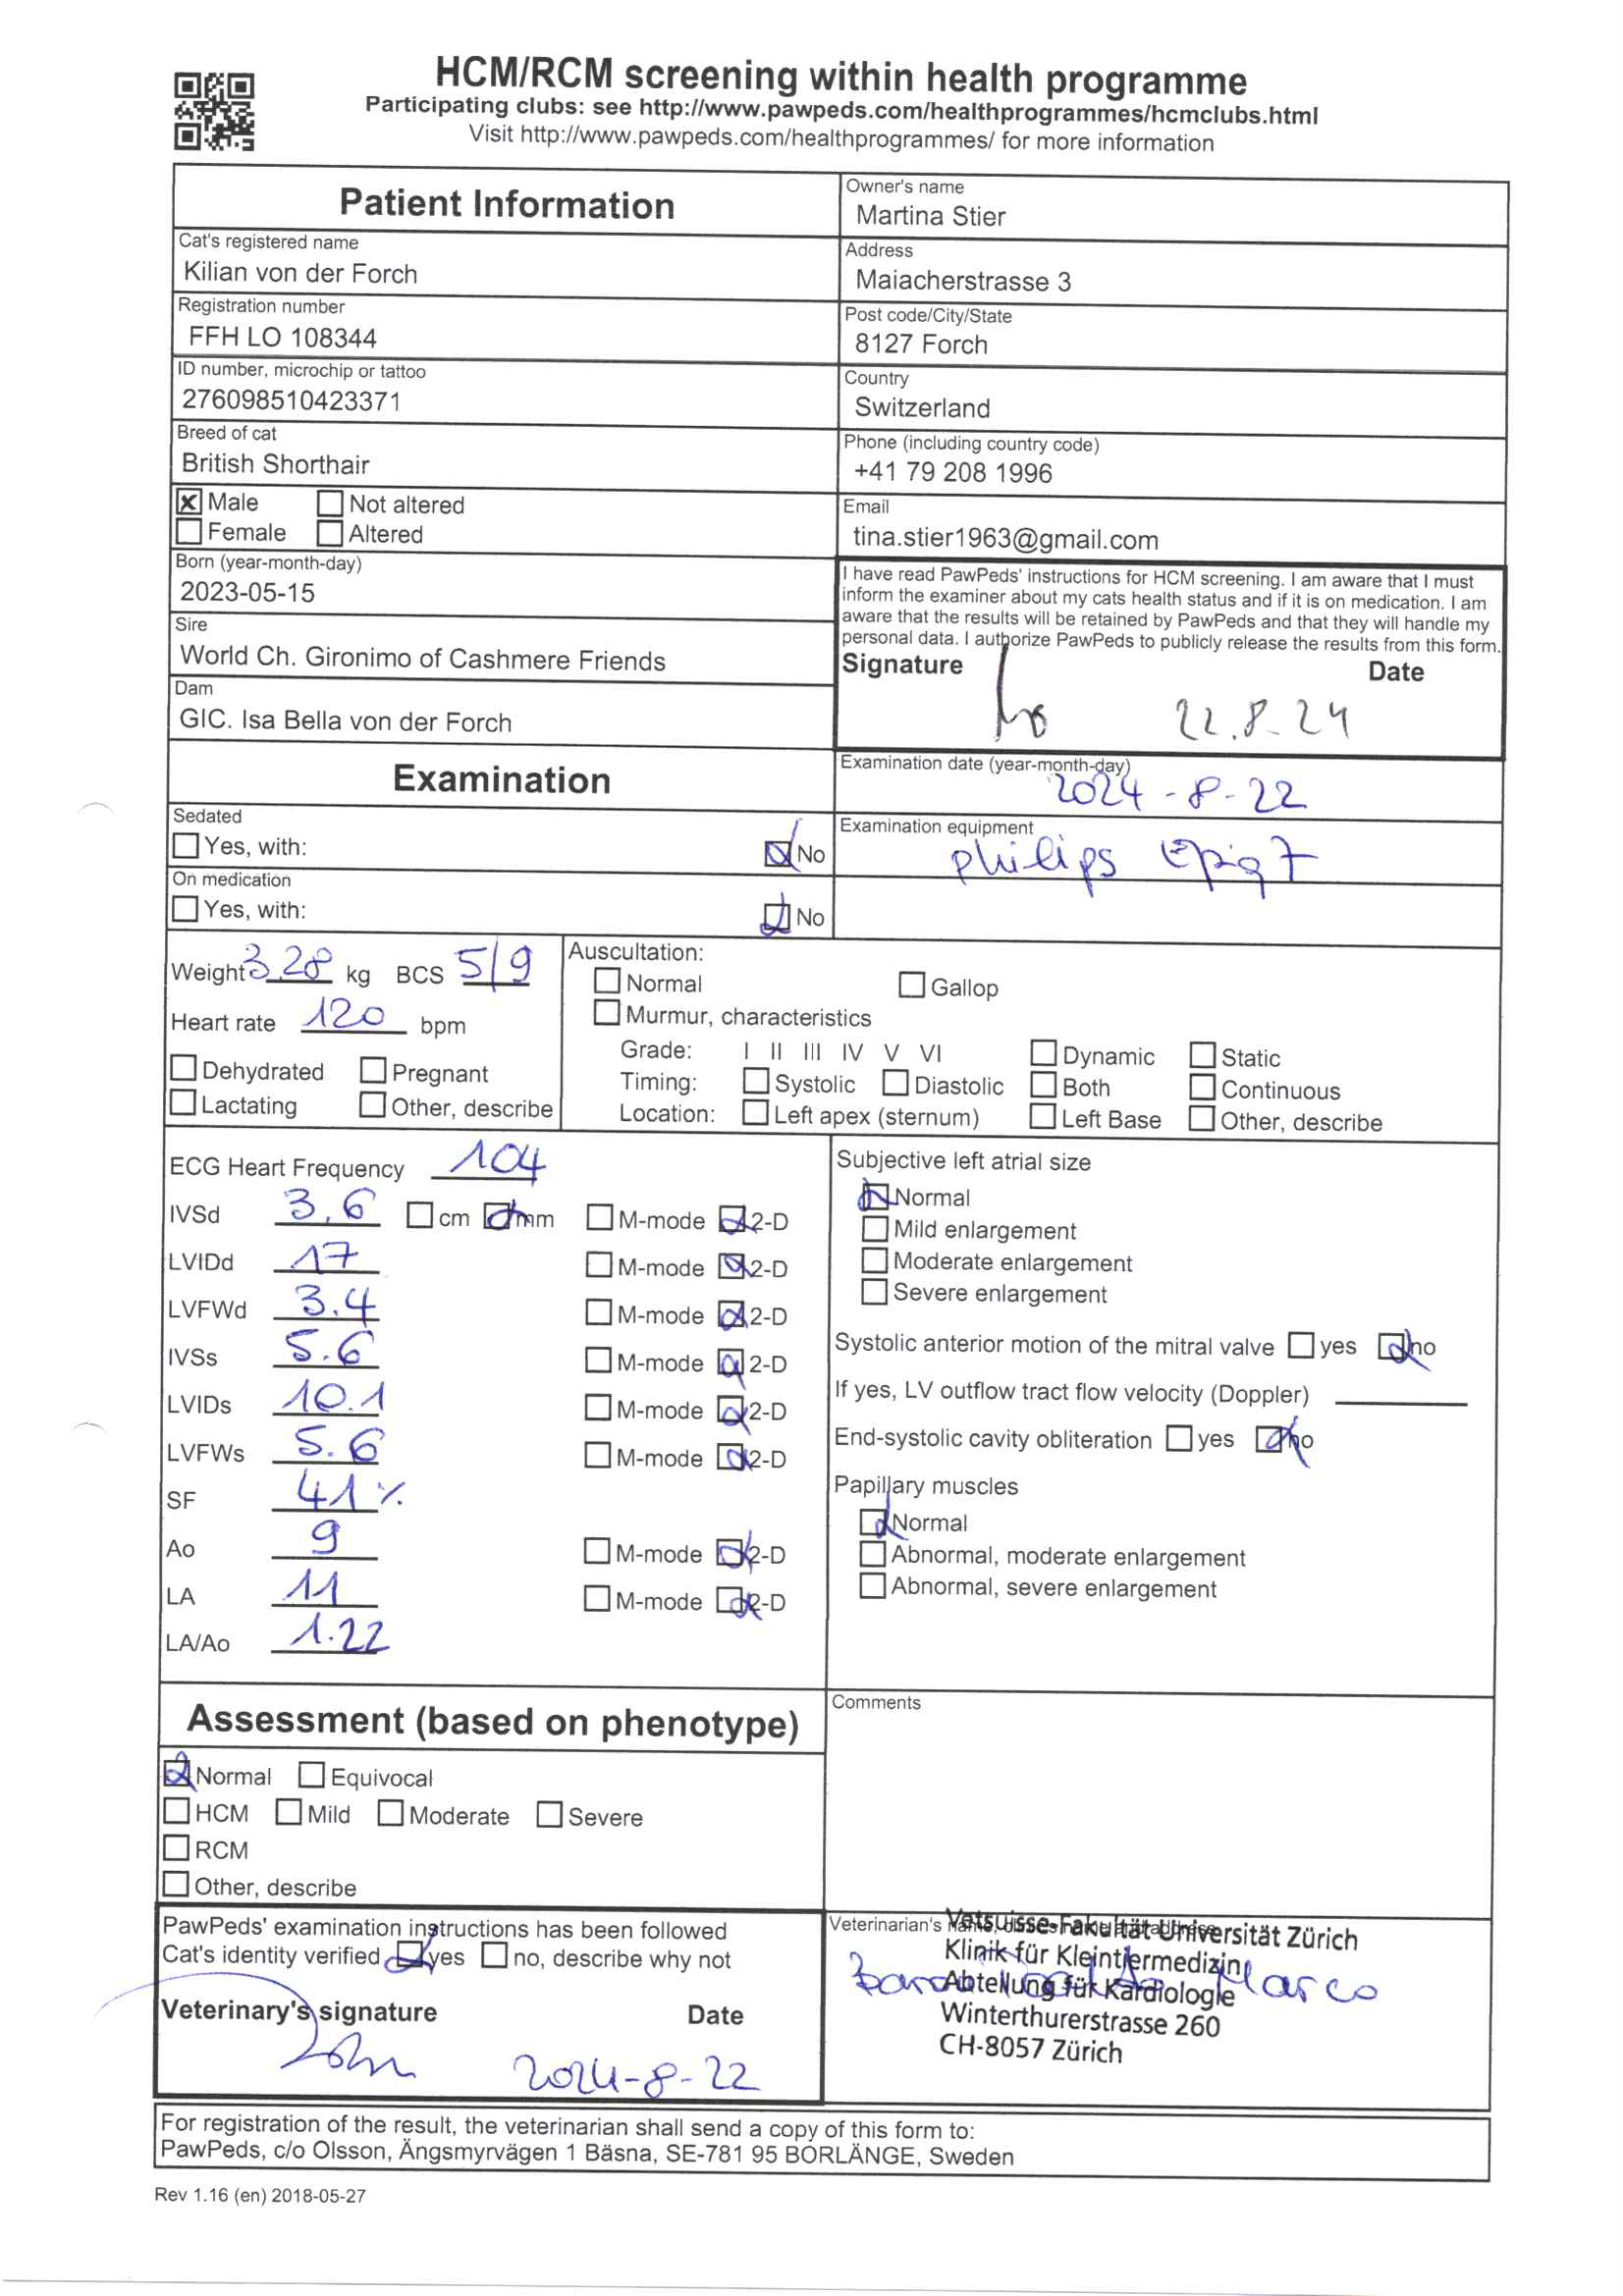 HCM/RCM screening within health programme
Participating clubs: see http://www.pawpeds.com/healthprogrammes/hcmclubs.html
Visit http://www.pawpeds.com/healthprogrammes/ for more information
Patient Information
Cat's registered name
Kilian von der Forch
Registration number
FFH LO 108344
ID number, microchip or tattoo
276098510423371
Breed of cat
British Shorthair
Male Not altered
Female Altered
Born (year-month-day)
2023-05-15
Sire
World Ch. Gironimo of Cashmere Friends
Dam
GIC. Isa Bella von der Forch
Owner's name
Martina Stier
Address
Maiacherstrasse 3
Post code/City/State
8127 Forch
Country
Switzerland
Phone (including country code)
+41 79 208 1996
Email
tina.stier1963@gmail.com
I have read PawPeds' instructions for HCM screening. I am aware that I must
inform the examiner about my cats health status and if it is on medication. I am
aware that the results will be retained by PawPeds and that they will handle my
personal data. I authorize PawPeds to publicly release the results from this form.
Signature Date
22.8.24
Examination
Examination date (year-month-day)
2024-8-22
Sedated
Yes, with: No
Examination equipment
philips Epiq 7
On medication
Yes, with: No
Weight 3.28 kg BCS 5/9
Heart rate 120 bpm
Dehydrated Pregnant
Lactating Other, describe
Auscultation:
Normal Gallop
Murmur, characteristics
Grade: I II III IV V VI Dynamic Static
Timing: Systolic Diastolic Both Continuous
Location: Left apex (sternum) Left Base Other, describe
ECG Heart Frequency 104
IVSd 3,6 cm mm M-mode 2-D
LVIDd 17 M-mode 2-D
LVFWd 3.4 M-mode 2-D
IVSs 5.6 M-mode 2-D
LVIDs 10.1 M-mode 2-D
LVFWs 5.6 M-mode 2-D
SF 41 %
Ao 9 M-mode 2-D
LA 11 M-mode 2-D
LA/Ao 1.22
Subjective left atrial size
Normal
Mild enlargement
Moderate enlargement
Severe enlargement
Systolic anterior motion of the mitral valve yes no
If yes, LV outflow tract flow velocity (Doppler)
End-systolic cavity obliteration yes no
Papillary muscles
Normal
Abnormal, moderate enlargement
Abnormal, severe enlargement
Assessment (based on phenotype)
Normal Equivocal
HCM Mild Moderate Severe
RCM
Other, describe
Comments
PawPeds' examination instructions has been followed
Cat's identity verified yes no, describe why not
Veterinary's signature Date
2024-8-22
Veterinarian's
Vetsuisse-Fakultät Universität Zürich
Klinik für Kleintiermedizin
Abteilung für Kardiologie
Marco
Winterthurerstrasse 260
CH-8057 Zürich
For registration of the result, the veterinarian shall send a copy of this form to:
PawPeds, c/o Olsson, Ängsmyrvägen 1 Bäsna, SE-781 95 BORLÄNGE, Sweden
Rev 1.16 (en) 2018-05-27